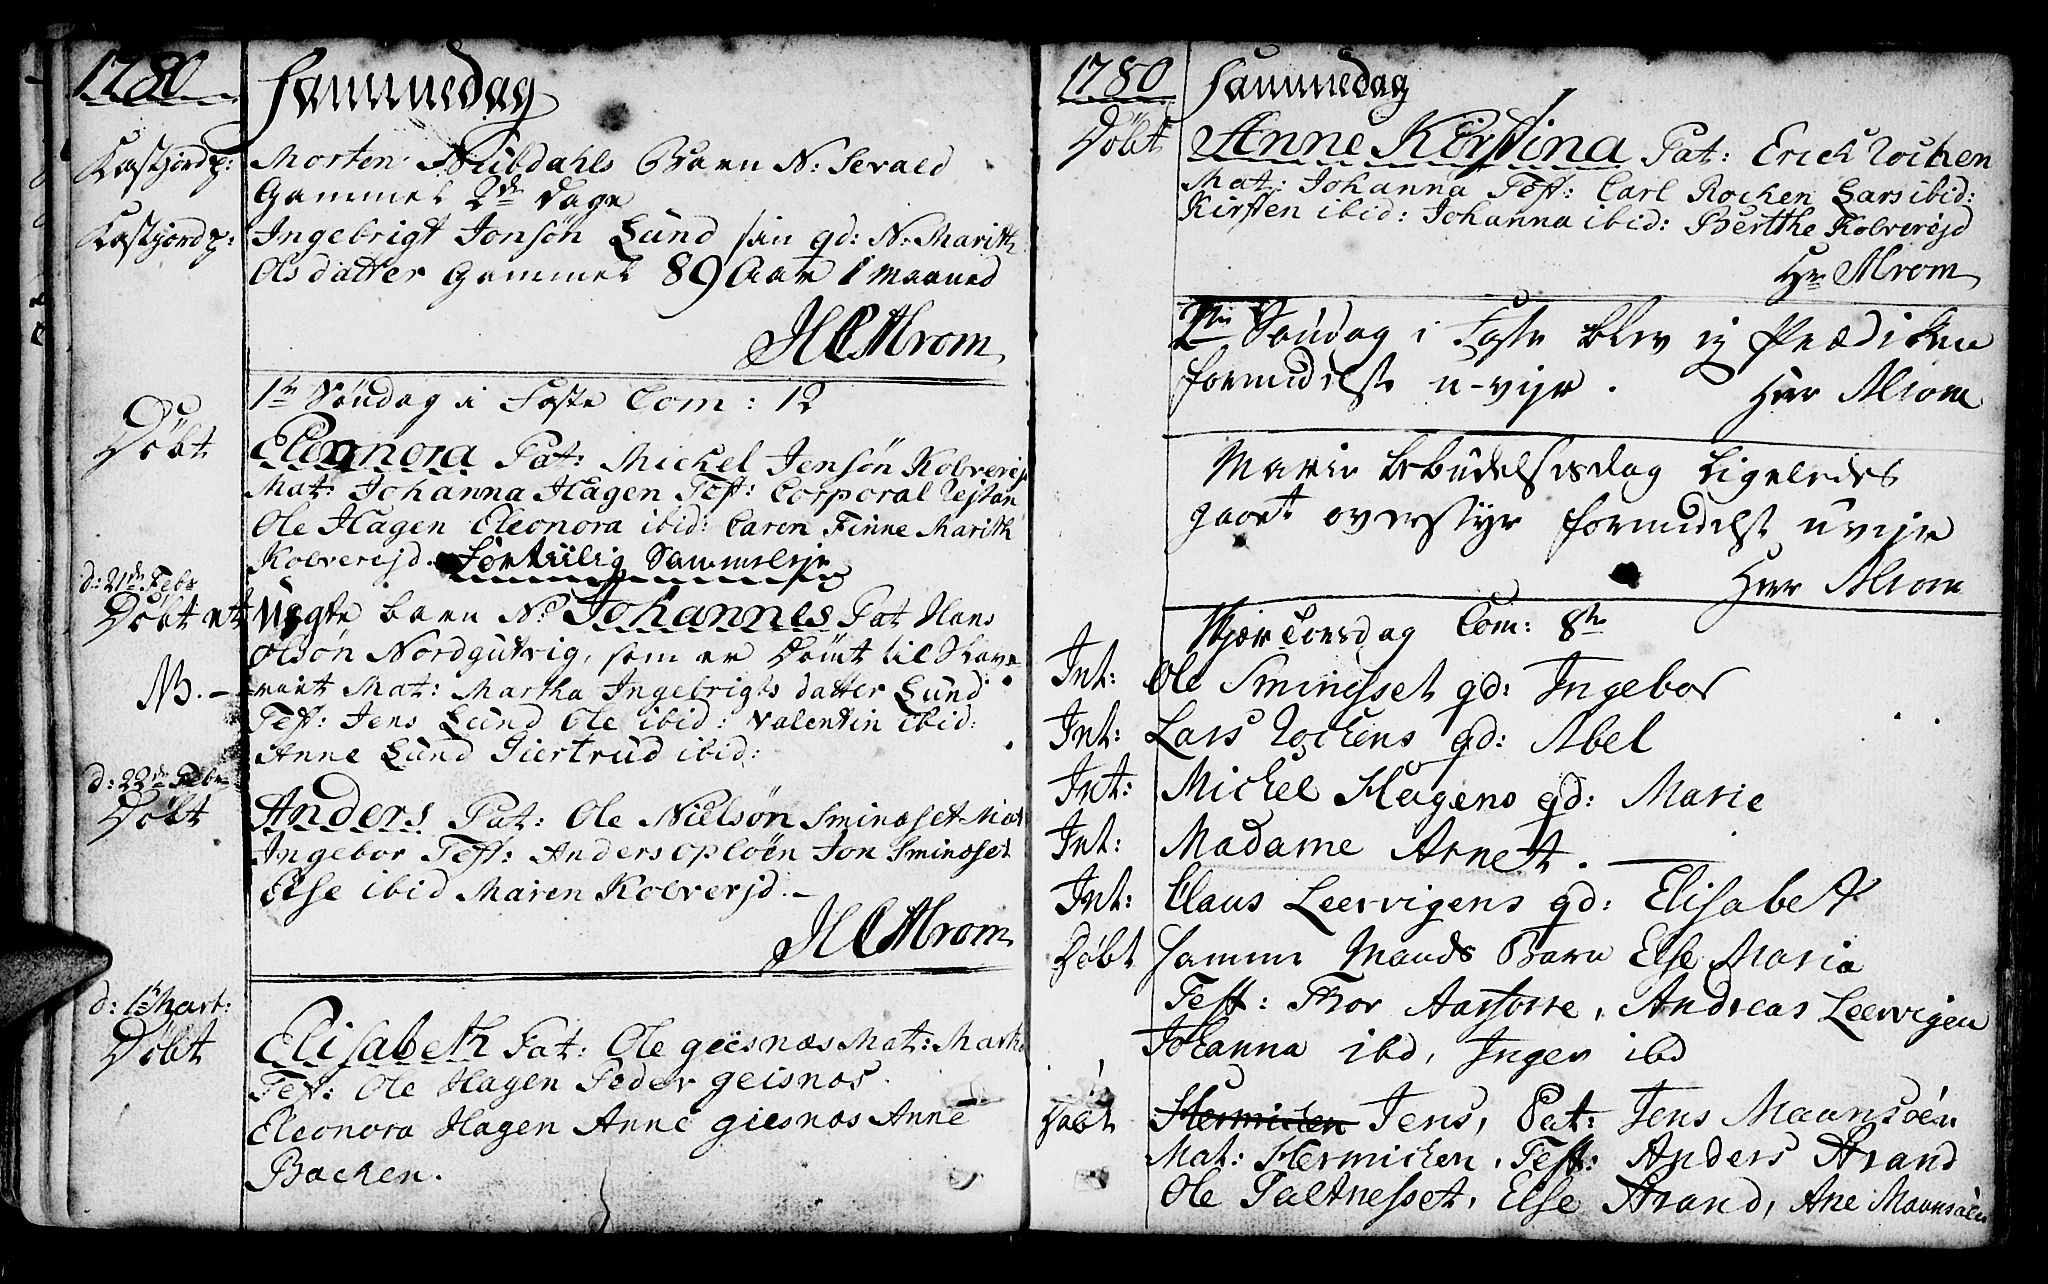 1780 Sammedag
Kastjord p: Morten Nubdahls Barn N: Sevald
Gammel 2de Dage
Kastjord p: Ingebrigt Jonsøn Lund sin qd: N: Marith
Olsdatter Gammel 89 Aar 1 Maaned
HCMrom
1te Søndag i Faste Com: 12
Døbt Eleonora Pat: Mickel Jensøn Kolverejd
Mat: Johanna Hagen Test: Corporal
Ole Hagen Eleonora ibid: Caren Finne Marith
Kolverejd. For tiilig Sammeleje
d: 21de Febr
Døbt et Uægte barn N: Johannes Pat Hans
Olsøn Nordgutvig, som er Dømt til Slave
NB. - riet Mat: Martha Ingebrigts datter Lund
Test: Jens Lund Ole ibid: Valentin ibid:
Anne Lund Giertrud ibid:
d: 22de Febr
Døbt Anders Pat: Ole Nielsøn Sminæset Mat
Ingebor Test: Anders Opløen Jon Sminæset
Else ibid Maren Kolverejd. -
HCMrom
d: 1te Mart:
Døbt Elisabeth Pat: Ole giesnæs Mat: Martha
Test: Ole Hagen Peder geisnæs.
Eleonora Hagen Anne giesnæs Anne
Backen.
1780 Sammedag
Døbt Anne Kirstina Pat: Erick Rocken
Mat: Johanna Test: Carl Rocken Lars ibid:
Kirsten ibid: Johanna ibid: Berthe Kolverejd
Hr Mrom
2den Søndag i Faste blev ej Prædiken
formedelst u-vejr. Herr Mrom
Mariæ bebudelsesdag ligeledes
gaaet overstyr formedelst uvejr
Herr Mrom
Skjær torsdag Com: 8te
Int: Ole Sminesset qd: Ingebor
Int: Lars Rockens qd: Abel
Int: Mickel Hagens qd: Marie
Int: Madame Arnet.
Int: Claus Leervigens qd: Elisabet
Døbt Samme Mands Barn Else Maria
Test: Thor Aarsorre, Andreas Leervigen
Johanna ibd, Inger ibd
Døbt Hermichen Jens, Pat: Jens Maunsøen
Mat: Hermichen, Test: Anders Strand
Ole Saltnesset, Else Strand, Ane Maunsøen